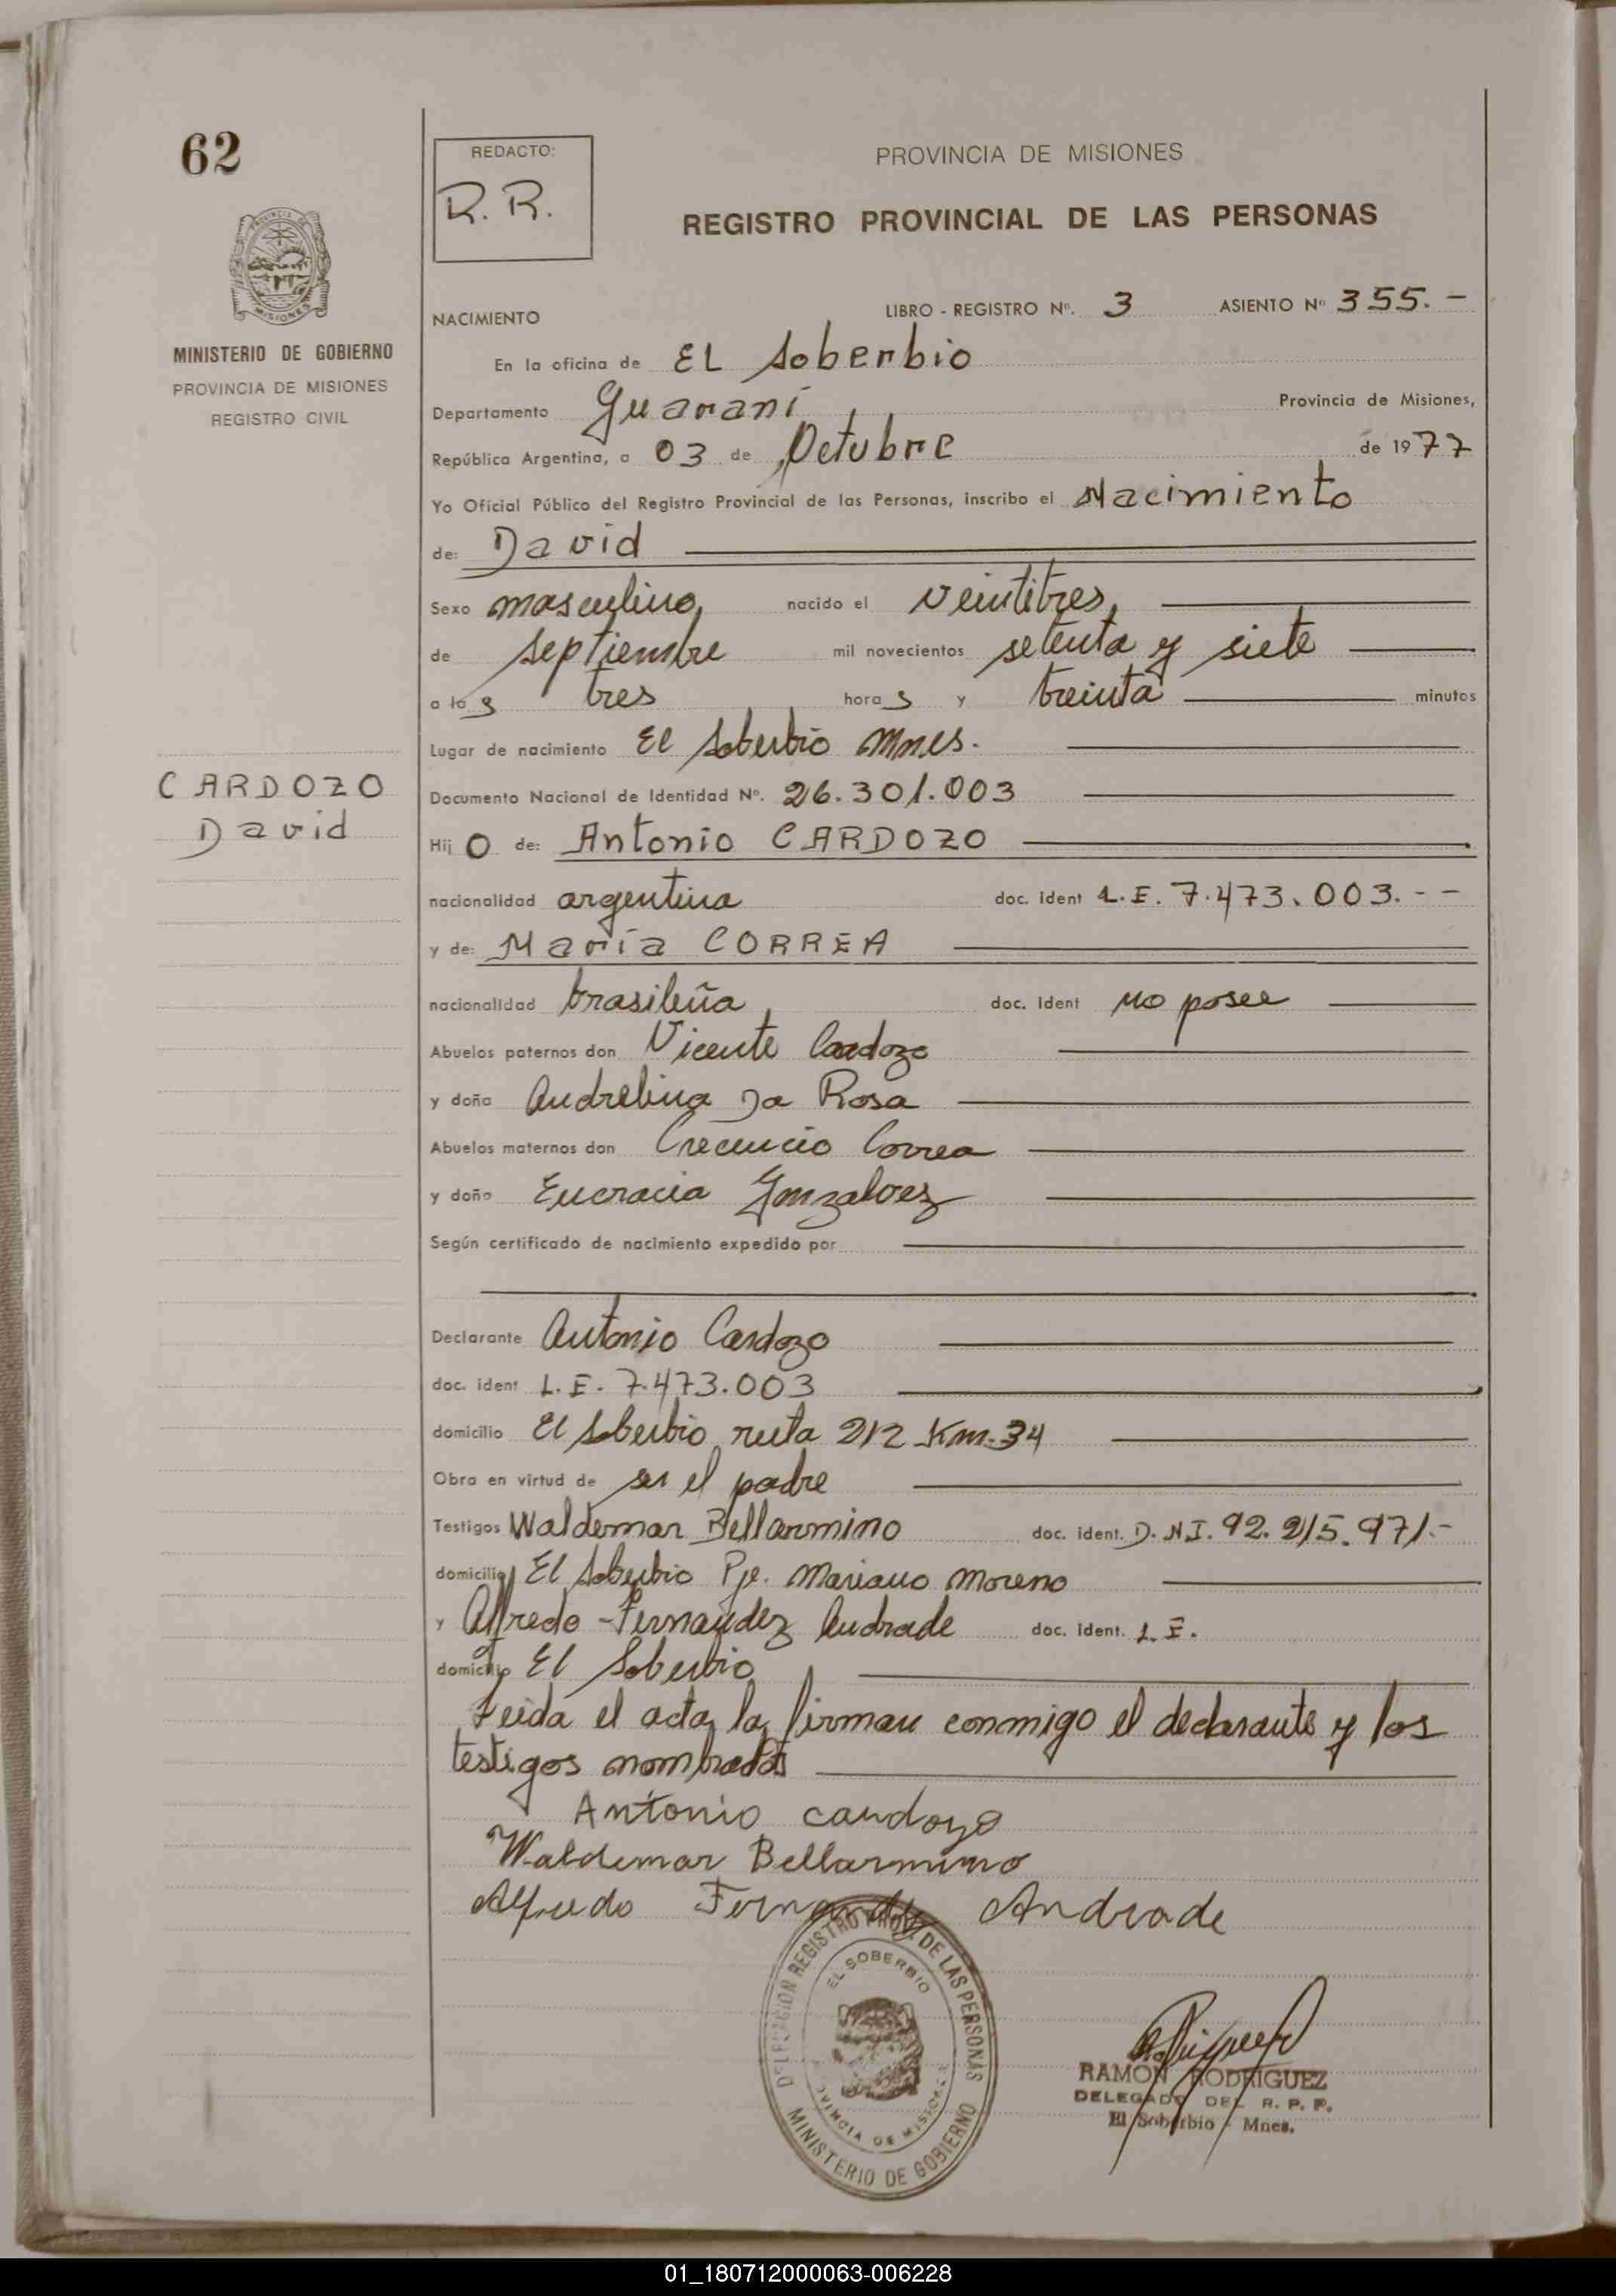 62
REDACTO:
R. R.
PROVINCIA DE MISIONES
REGISTRO PROVINCIAL DE LAS PERSONAS
MINISTERIO DE GOBIERNO
PROVINCIA DE MISIONES
REGISTRO CIVIL
NACIMIENTO
LIBRO - REGISTRO Nº. 3 ASIENTO Nº 355. -
En la oficina de EL Soberbio
Departamento Guaraní Provincia de Misiones,
República Argentina, a 03 de Octubre de 1977
Yo Oficial Público del Registro Provincial de las Personas, inscribo el Nacimiento
de: David
Sexo masculino, nacido el veintitres,
de septiembre mil novecientos setenta y siete
a las tres horas y treinta minutos
Lugar de nacimiento El Soberbio Mnes.
CARDOZO
David
Documento Nacional de Identidad Nº. 26.301.003
Hijo de: Antonio CARDOZO
nacionalidad argentina doc. ident L.E. 7.473.003. - -
y de: María CORREA
nacionalidad brasileña, doc. ident no posee
Abuelos paternos don Vicente Cardozo
y doña Andrelina Da Rosa
Abuelos maternos don Crecencio Correa
y doña Eucracia Gonzalvez
Según certificado de nacimiento expedido por
Declarante Antonio Cardozo
doc. ident L.E. 7.473.003
domicilio El Soberbio ruta 212 Km. 34
Obra en virtud de ser el padre
Testigos Waldemar Bellarmino doc. ident. D.N.I. 92.215.971.-
domicilio El Soberbio Pje. Mariano Moreno
y Alfredo Fernandez Andrade doc. ident. L.E.
domicilio El Soberbio
Leida el acta, la firman conmigo el declarante y los
testigos nombrados
Antonio cardozo
Waldemar Bellarmino
Alfredo Fernandez Andrade
DELEGACION REGISTRO PROV. DE LAS PERSONAS
EL SOBERBIO
PROVINCIA DE MISIONES
MINISTERIO DE GOBIERNO
RAMON RODRIGUEZ
DELEGADO DEL R. P. P.
El Soberbio - Mnes.
01_180712000063-006228